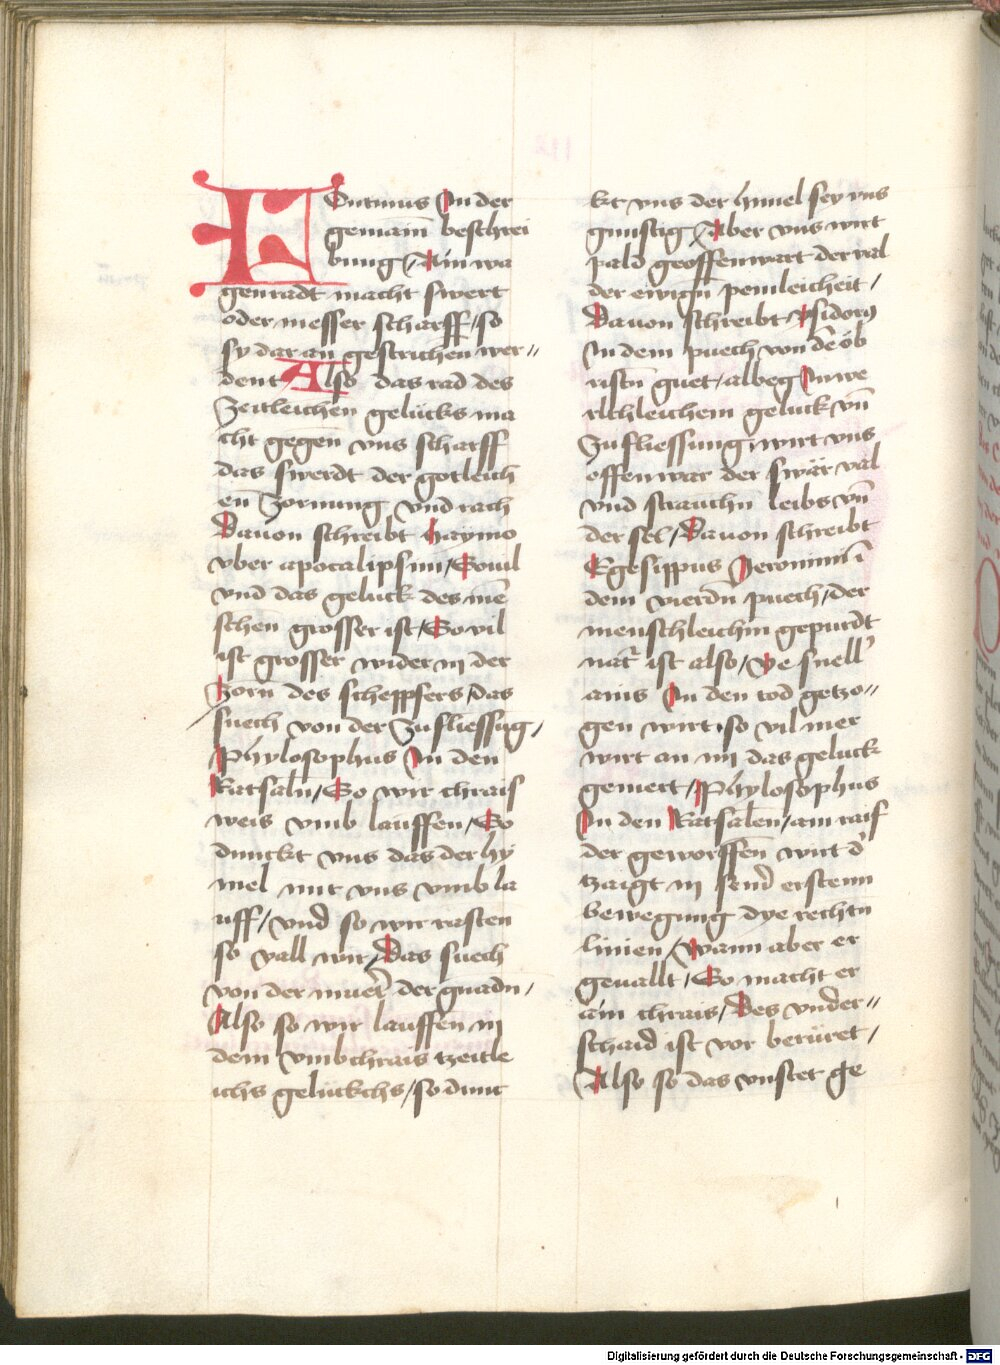 EOntinus In der
gemainn beschrei
bung / Ain wa
genradt macht swert
oder messer scharff / so
sy dar an gestrichen wer〃
dent Also das rad des
Zeitleichen gelücks ma
cht gegen vns scharff
das swerdt der gotleich
en Zornung vnd rach
Dauon schreibt haymo
vber apocalipsim / Souil
vnd das geluck des mē
schen grosser ist / So vil
ist grosser wider in der
Zorn des scheppfers / das
suech von der Zufliessūg /
Phylosophus In den
Ratsaln / So wir chrais
weis vmb lauffen / So
dunckt vns das der hy
mel mit vns vmb la
uff / vnd so wir rasten
so vall wir / Das suech
von der mueī der gnadn /
Also so wir lauffen in
dem vmbchrais tzeitle
ichs gelückchs / so dunc
kt vns der himel sey vns
gunstig / Aber vns wirt
pald geoffenwart der val
der ewign peinleicheit /
Dauon schreibt ysidorꝰ
In dem puech von dē ob
ristn guet / albeg In we
rltleichem geluck vn̄
Zufliessung wirt vns
offenwar der swär val
vnd strauchn leibs vn̄
der sel / Dauon schreibt
Egesippus Jeronimi ī
dem vierdn puech / der
menschleichn gepurdt
natr ist also / ye snell'
ains In den tod getzo〃
gen wirt · so vil mer
wirt an im das geluck
gemert / Phylosophus
In den Ratsalen / am raif
der geworffen wirt d'
tzaigt in send' ersten
bewegung dye rechtn
linien / wann aber er
geuallt / So macht er
ain chrais / Des vnder〃
schaid ist vor berüret /
Also so das vnstet ge
Digitalisierung gefördert durch die Deutsche Forschungsgemeinschaft - DFG